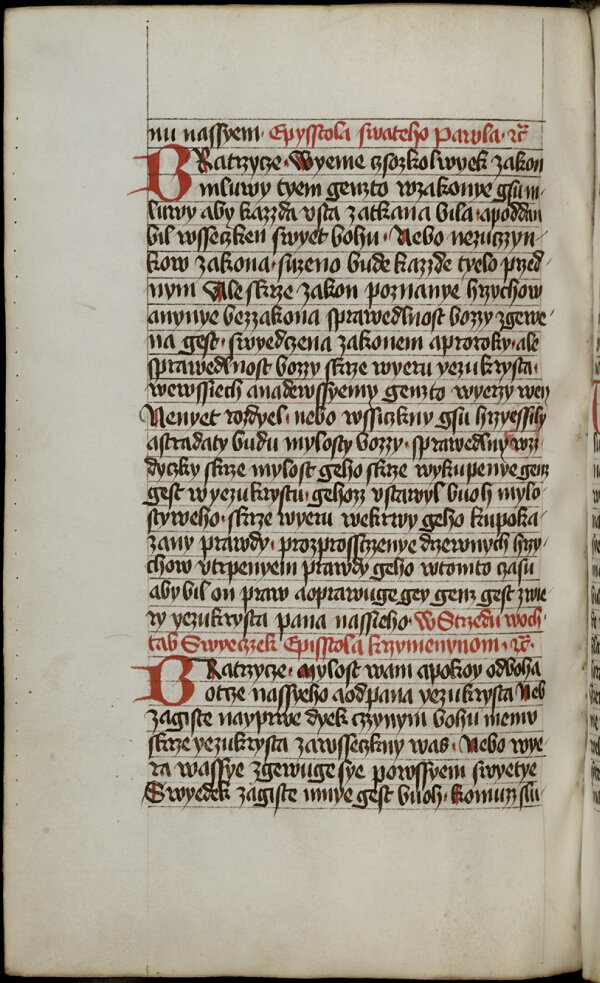 nu nassyem · Epysstola swateho Pawla · &c̄
BRatrzycze · Wyeme czozkolwyek zakon
mluwy tyem genzto wzakonye gsu m
luwy aby kazzda vsta zatkana bila · apoddan
bil wsseczken swyet bohu · Nebo nezuczyn-
kow zakona · suzeno bude kazzde tyelo przed-
nym Ale skrze zakon poznanye hrzychow
anynye bezzakona sprawedlnost bozzy zgewe-
na gest · swyedczena zakonem aproroky · ale
sprawedlnost bozzy skrze wyeru yezukrysta ·
wewssiech anadewssyemy genzto wyerzy wen
Nenyet rozdyel · nebo wssiczkny gsu hrzyessily
astradaty budu mylosty bozzy · sprawedlny
dyczky skrze mylost geho skrze wykupenye genz
gest wyezukrystu · gehozz vstawyl buoh mylo-
styweho · skrze wyeru wekrwy geho kupoka-
zany prawdy · prozprossczzenye drzewnych hrzy-
chow vtrpenyem prawdy geho wtomto czasu
aby bil on praw aoprawuge gey genz gest zwie
ry yezukrysta pana nassieho · W Strzedu woch-
tab Swyeczzek Epistola krzymenynom · &c̄ ·
BRatrzycze · mylost wam apokoy odboha
otcze nassyeho aodpana yezukrysta Neb
zagiste nayprwe dyek czzynym bohu memu
skrze yezukrysta zawsseczkny was · Nebo wye-
ra wassye zgewuge sye powssyem swyetye
Swyedek zagiste mnye gest buoh · komuzz slu-